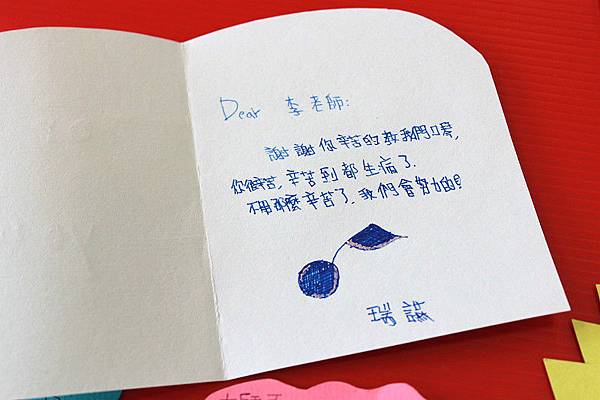 Dear 李老師:
謝謝你辛苦的教我們口琴,
你很辛苦,辛苦到都生病了.
不用那麼辛苦了.我們會努力的!
瑞議